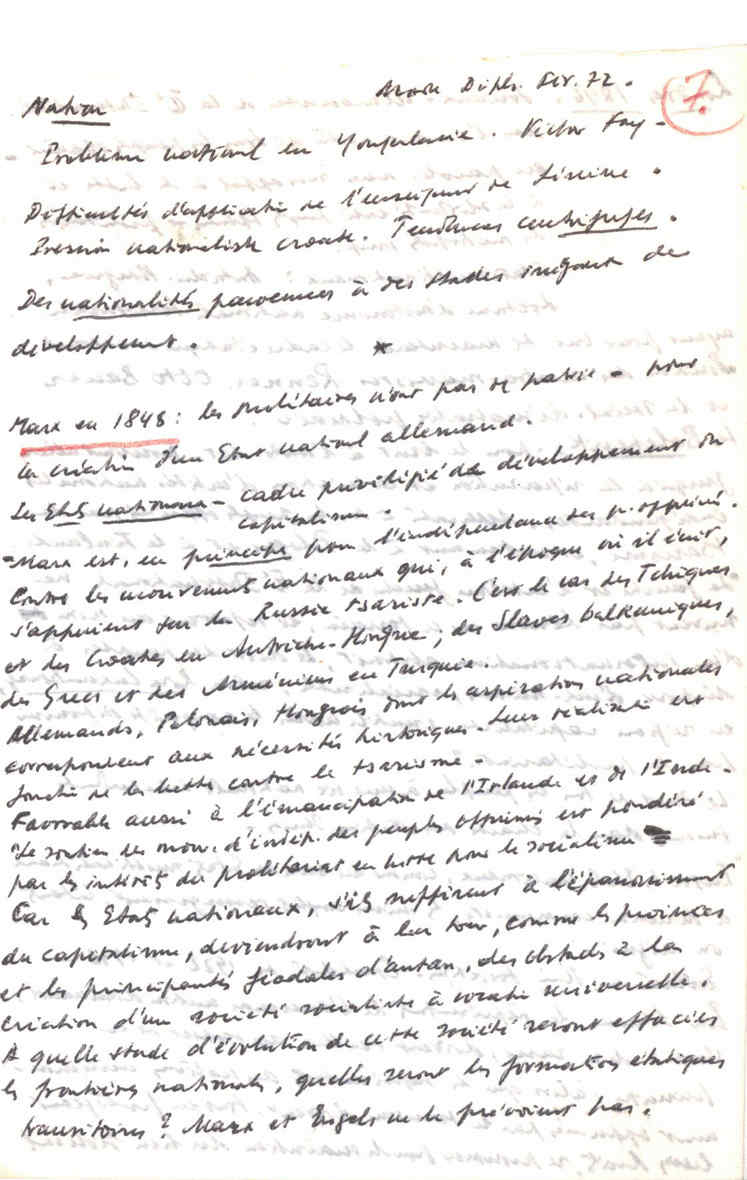 Monde Dipl. Fév. 72.
7.
Nation
Problème national en Yougoslavie. Victor Fay -
Difficultés d'application de l'enseignement de Lénine.
Pression nationaliste croate. Tendances centrifuges.
Des nationalités parvenues à des stades inégaux de
développement.
*
Marx en 1848 : les prolétaires n'ont pas de patrie - pour
la création d'un Etat national allemand.
Les Etats nationaux - cadre privilégié de développement du
capitalisme.
- Marx est, en principe pour l'indépendance des p. opprimés.
Contre les mouvements nationaux qui, à l'époque où il écrit,
s'appuient sur la Russie tsariste. C'est le cas des Tchèques
et des Croates en Autriche-Hongrie ; des Slaves balkaniques,
des Grecs et des Arméniens en Turquie.
Allemands, Polonais, Hongrois dont les aspirations nationales
correspondent aux nécessités historiques. Leur réalisation est
fonction de la lutte contre le tsarisme.
Favorable aussi à l'émancipation de l'Irlande et de l'Inde.
Le soutien des mouv. d'indép. des peuples opprimés est pondéré
par les intérêts du prolétariat en lutte pour le socialisme
Car les Etats nationaux, s'ils suffirent à l'épanouissement
du capitalisme, deviendront à leur tour, comme les provinces
et les principautés féodales d'antan, des obstacles à la
création d'une société socialiste à vocation universelle.
A quelle stade d'évolution de cette société seront effacées
les frontières nationales, quelles seront les formations étatiques
transitoires ? Marx et Engels ne le prévoient pas.